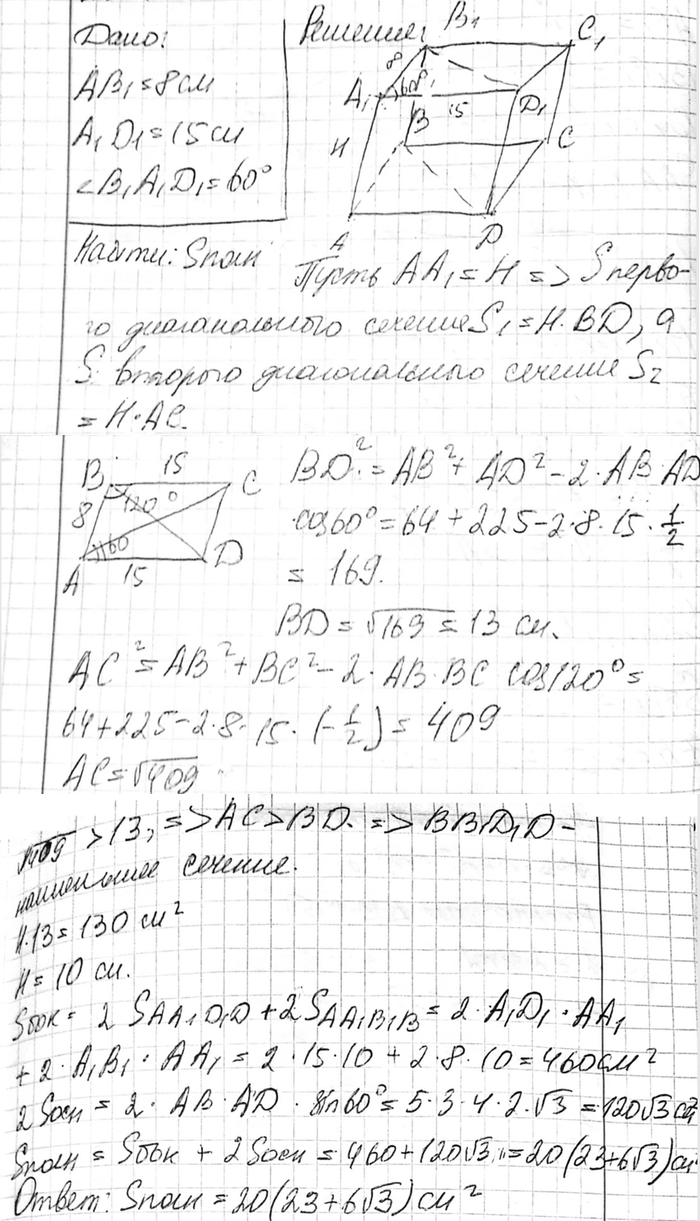 Дано:
Решение:
AB₁=8см
A₁D₁=15см
∠B₁A₁D₁=60°
B₁
C₁
8
A₁
60°
D₁
B
15
H
C
A
D
Найти: Sполн
Пусть AA₁=H => S перво-
го диагонального сечение S₁=H·BD, а
S второго диагонального сечение S₂
=H·AC.
B
15
C
8
120°
60
A
15
D
BD²=AB²+AD²-2·AB·AD
·cos60°=64+225-2·8·15·1/2
=169.
BD=√169=13 см.
AC²=AB²+BC²-2·AB·BC cos120°=
64+225-2·8·15·(-1/2)=409
AC=√409
√409>13, =>AC>BD. => BB₁D₁D-
наименьшее сечение.
H·13=130 см²
H=10 см.
Sбок= 2 SAA₁D₁D+2 SAA₁B₁B=2·A₁D₁·AA₁
+2·A₁B₁·AA₁=2·15·10+2·8·10=460см²
2Sосн=2·AB·AD·sin60°=5·3·4·2·√3=120√3 см²
Sполн=Sбок+2Sосн=460+120√3=20(23+6√3)см
Ответ: Sполн=20(23+6√3)см²